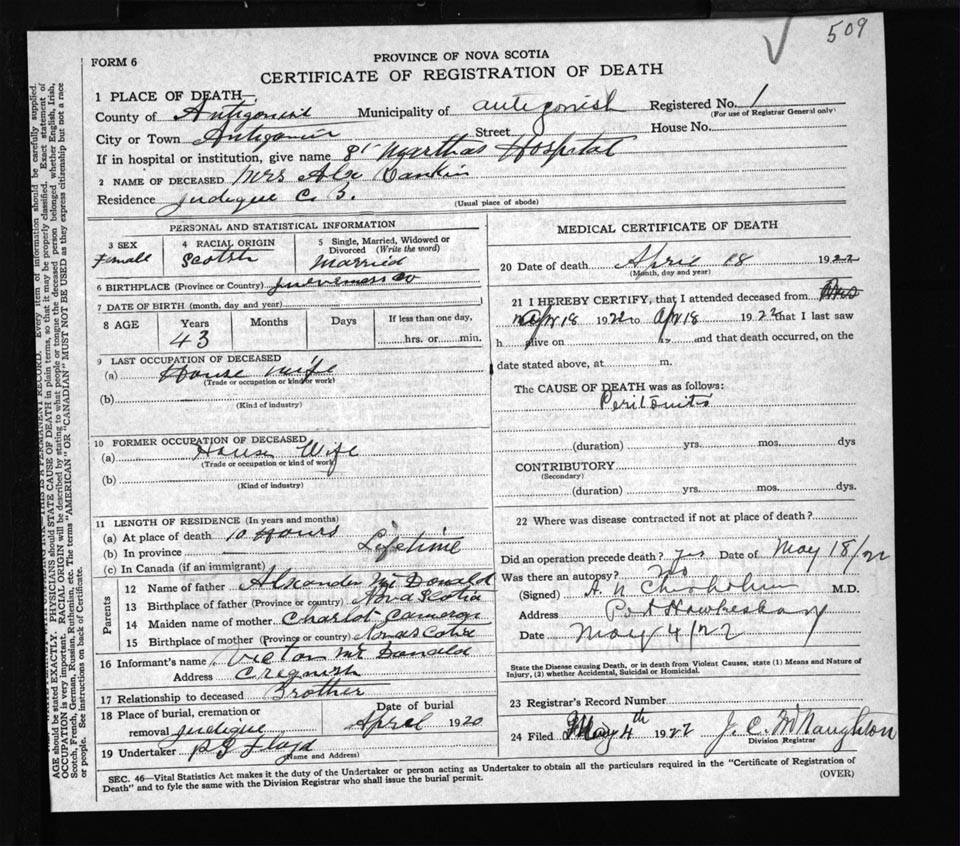 509
FORM 6
PROVINCE OF NOVA SCOTIA
CERTIFICATE OF REGISTRATION OF DEATH
1 PLACE OF DEATH—
County of Municipality of antigonish Registered No. 1
(For use of Registrar General only)
City or Town Street House No.
If in hospital or institution, give name St Marthas Hospital
2 NAME OF DECEASED Mrs Alx Rankin
Residence Judique C. B.
(Usual place of abode)
PERSONAL AND STATISTICAL INFORMATION
3 SEX 4 RACIAL ORIGIN 5 Single, Married, Widowed or Divorced (Write the word)
Female Scotsh Married
6 BIRTHPLACE (Province or Country) Inverness Co
7 DATE OF BIRTH (month, day and year)
8 AGE Years Months Days If less than one day,
43 hrs. or min.
9 LAST OCCUPATION OF DECEASED
(a) House wife
(Trade or occupation or kind of work)
(b)
(Kind of industry)
10 FORMER OCCUPATION OF DECEASED
(a) House Wife
(Trade or occupation or kind of work)
(b)
(Kind of industry)
11 LENGTH OF RESIDENCE (In years and months)
(a) At place of death 10 Hours
(b) In province Lifetime
(c) In Canada (if an immigrant)
Parents
12 Name of father Alxander McDonald
13 Birthplace of father (Province or country) Nova Scotia
14 Maiden name of mother Charlot Cameron
15 Birthplace of mother (Province or country) Nova Scotia
16 Informant's name Victor McDonald
Address Cregnish
17 Relationship to deceased Brother
18 Place of burial, cremation or Date of burial
removal Judique April 1920
19 Undertaker
(Name and Address)
MEDICAL CERTIFICATE OF DEATH
20 Date of death April 18 1922
(Month, day and year)
21 I HEREBY CERTIFY, that I attended deceased from
Apr 18 1922 to Apr 18 1922 that I last saw
h alive on 19 and that death occurred, on the
date stated above, at m.
The CAUSE OF DEATH was as follows:
Peritonitis
(duration) yrs. mos. dys
CONTRIBUTORY
(Secondary)
(duration) yrs. mos. dys.
22 Where was disease contracted if not at place of death?
Did an operation precede death? yes Date of May 18/22
Was there an autopsy? no
(Signed) A. N. Chisholm M.D.
Address Port Hawkesbury
Date May 4/22
State the Disease causing Death, or in death from Violent Causes, state (1) Means and Nature of
Injury, (2) whether Accidental, Suicidal or Homicidal.
23 Registrar's Record Number
24 Filed May 4th 1922 J. C. McNaughton
Division Registrar
SEC. 46—Vital Statistics Act makes it the duty of the Undertaker or person acting as Undertaker to obtain all the particulars required in the "Certificate of Registration of
Death" and to fyle the same with the Division Registrar who shall issue the burial permit.
(OVER)
THIS IS A PERMANENT RECORD. Every item of information should be carefully supplied.
AGE should be stated EXACTLY. PHYSICIANS should STATE CAUSE OF DEATH in plain terms, so that it may be properly classified. Exact statement of
OCCUPATION is very important. RACIAL ORIGIN will be described by stating to what people or tongue the deceased person belonged whether English, Irish,
Scotch, French, German, Russian, Ruthenian, etc. The terms "AMERICAN" OR "CANADIAN" MUST NOT BE USED as they express citizenship but not a race
or people. See instructions on back of Certificate.